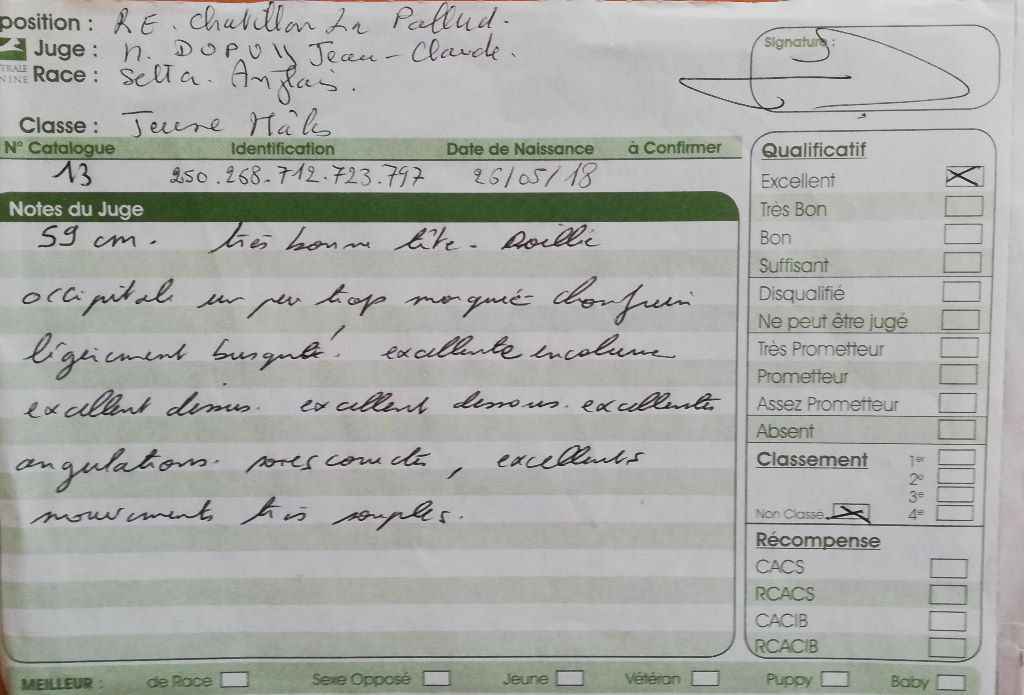 position : R.E. Chatillon La Pallud.
Juge : M. DUPUY Jean-Claude.
TRALE
NINE
Race : Setter Anglais.
Signature :
Classe : Jeune Mâles
N° Catalogue Identification Date de Naissance à Confirmer
13 250.268.712.723.797 26/05/18
Notes du Juge
59 cm. très bonne tête. Saillie
occipitale un peu trop marquée chanfrein
légèrement busqué. excellente encolure
excellent dessus. excellent dessous. excellentes
angulations. correctes, excellents
mouvements très souples.
Qualificatif
Excellent
Très Bon
Bon
Suffisant
Disqualifié
Ne peut être jugé
Très Prometteur
Prometteur
Assez Prometteur
Absent
Classement 1er
2e
3e
Non Classé 4e
Récompense
CACS
RCACS
CACIB
RCACIB
MEILLEUR : de Race Sexe Opposé Jeune Vétéran Puppy Baby